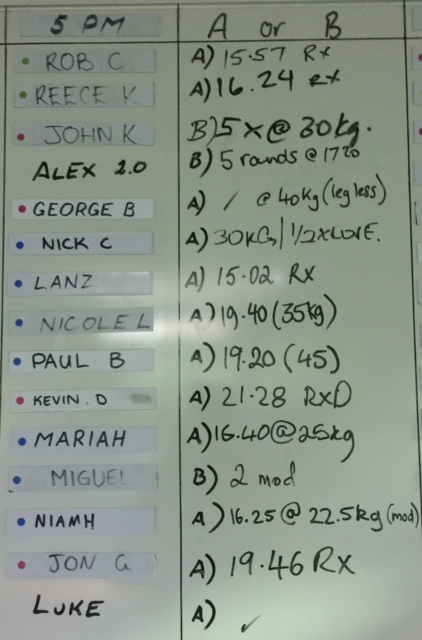 5 PM A or B
ROB. C A) 15.57 Rx
REECE K A) 16.24 Rx
JOHN K B) 5 x @ 30kg.
ALEX 2.0 B) 5 rounds @ 1720
GEORGE B A) / @ 40kg (legless)
NICK C A) 30KG / 1/2
LANZ A) 15.02 RX
NICOLE L A) 19.40 (35kg)
PAUL B A) 19.20 (45)
KEVIN. D A) 21.28 RxD
MARIAH A) 16.40 @ 25kg
MIGUEL B) 2 mod
NIAMH A) 16.25 @ 22.5kg (mod)
JON G A) 19.46 RX
LUKE A) ✓